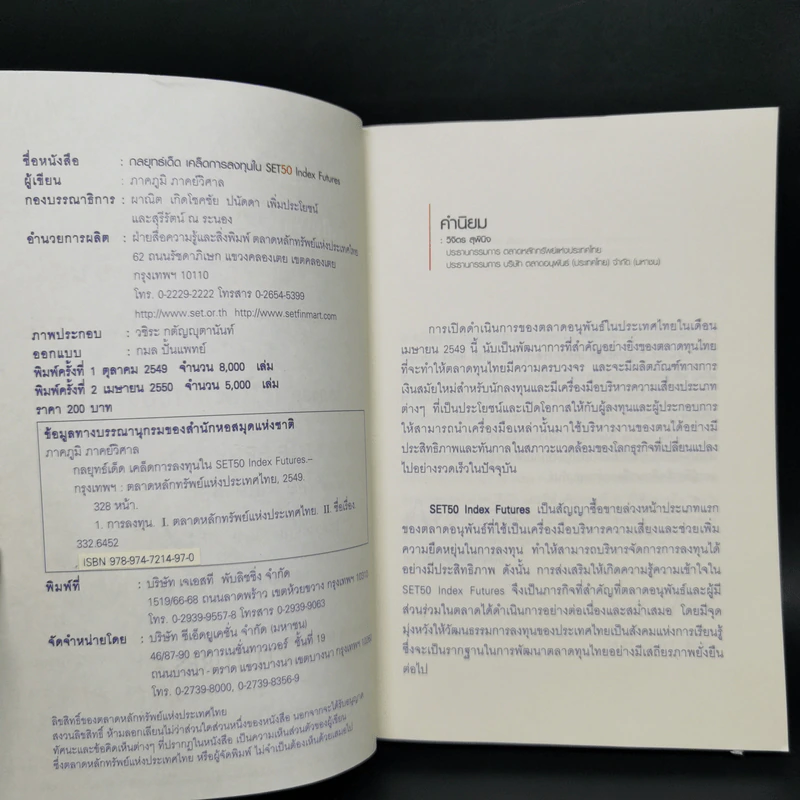 ชื่อหนังสือ : กลยุทธ์เด็ด เคล็ดการลงทุนใน SET50 Index Futures
ผู้เขียน : ภาคภูมิ ภาคย์วิศาล
กองบรรณาธิการ : ผาณิต เกิดโชคชัย ปนัดดา เพิ่มประโยชน์
และสุรีรัตน์ ณ ระนอง
อำนวยการผลิต : ฝ่ายสื่อความรู้และสิ่งพิมพ์ ตลาดหลักทรัพย์แห่งประเทศไทย
62 ถนนรัชดาภิเษก แขวงคลองเตย เขตคลองเตย
กรุงเทพฯ 10110
โทร. 0-2229-2222 โทรสาร 0-2654-5399
http://www.set.or.th http://www.setfinmart.com
ภาพประกอบ : วชิระ กตัญญุตานันท์
ออกแบบ : กมล ปั้นแพทย์
พิมพ์ครั้งที่ 1 ตุลาคม 2549 จำนวน 8,000 เล่ม
พิมพ์ครั้งที่ 2 เมษายน 2550 จำนวน 5,000 เล่ม
ราคา 200 บาท
ข้อมูลทางบรรณานุกรมของสำนักหอสมุดแห่งชาติ
ภาคภูมิ ภาคย์วิศาล
กลยุทธ์เด็ด เคล็ดการลงทุนใน SET50 Index Futures.–
กรุงเทพฯ : ตลาดหลักทรัพย์แห่งประเทศไทย, 2549.
328 หน้า.
1. การลงทุน. I. ตลาดหลักทรัพย์แห่งประเทศไทย. II. ชื่อเรื่อง
332.6452
ISBN 978-974-7214-97-0
พิมพ์ที่ : บริษัท เจเอสที พับลิชชิ่ง จำกัด
1519/66-68 ถนนลาดพร้าว เขตห้วยขวาง กรุงเทพฯ 10310
โทร. 0-2939-9557-8 โทรสาร 0-2939-9063
จัดจำหน่ายโดย : บริษัท ซีเอ็ดยูเคชั่น จำกัด (มหาชน)
46/87-90 อาคารเนชั่นทาวเวอร์ ชั้นที่ 19
ถนนบางนา - ตราด แขวงบางนา เขตบางนา กรุงเทพฯ
โทร. 0-2739-8000, 0-2739-8356-9
ลิขสิทธิ์ของตลาดหลักทรัพย์แห่งประเทศไทย
สงวนลิขสิทธิ์ ห้ามลอกเลียนไม่ว่าส่วนใดส่วนหนึ่งของหนังสือ นอกจากจะได้รับอนุญาต
ทัศนะและข้อคิดเห็นต่างๆ ที่ปรากฏในหนังสือ เป็นความเห็นส่วนตัวของผู้เขียน
ซึ่งตลาดหลักทรัพย์แห่งประเทศไทย หรือผู้จัดพิมพ์ ไม่จำเป็นต้องเห็นด้วยเสมอไป
คำนิยม
: วิจิตร สุพินิจ
ประธานกรรมการ ตลาดหลักทรัพย์แห่งประเทศไทย
ประธานกรรมการ บริษัท ตลาดอนุพันธ์ (ประเทศไทย) จำกัด (มหาชน)
การเปิดดำเนินการของตลาดอนุพันธ์ในประเทศไทยในเดือน
เมษายน 2549 นี้ นับเป็นพัฒนาการที่สำคัญอย่างยิ่งของตลาดทุนไทย
ที่จะทำให้ตลาดทุนไทยมีความครบวงจร และจะมีผลิตภัณฑ์ทางการ
เงินสมัยใหม่สำหรับนักลงทุนและมีเครื่องมือบริหารความเสี่ยงประเภท
ต่างๆ ที่เป็นประโยชน์และเปิดโอกาสให้กับผู้ลงทุนและผู้ประกอบการ
ให้สามารถนำเครื่องมือเหล่านั้นมาใช้บริหารงานของตนได้อย่างมี
ประสิทธิภาพและทันกาลในสภาวะแวดล้อมของโลกธุรกิจที่เปลี่ยนแปลง
ไปอย่างรวดเร็วในปัจจุบัน
SET50 Index Futures เป็นสัญญาซื้อขายล่วงหน้าประเภทแรก
ของตลาดอนุพันธ์ที่ใช้เป็นเครื่องมือบริหารความเสี่ยงและช่วยเพิ่ม
ความยืดหยุ่นในการลงทุน ทำให้สามารถบริหารจัดการการลงทุนได้
อย่างมีประสิทธิภาพ ดังนั้น การส่งเสริมให้เกิดความรู้ความเข้าใจใน
SET50 Index Futures จึงเป็นภารกิจที่สำคัญที่ตลาดอนุพันธ์และผู้มี
ส่วนร่วมในตลาดได้ดำเนินการอย่างต่อเนื่องและสม่ำเสมอ โดยมีจุด
มุ่งหวังให้วัฒนธรรมการลงทุนของประเทศไทยเป็นสังคมแห่งการเรียนรู้
ซึ่งจะเป็นรากฐานในการพัฒนาตลาดทุนไทยอย่างมีเสถียรภาพยั่งยืน
ต่อไป